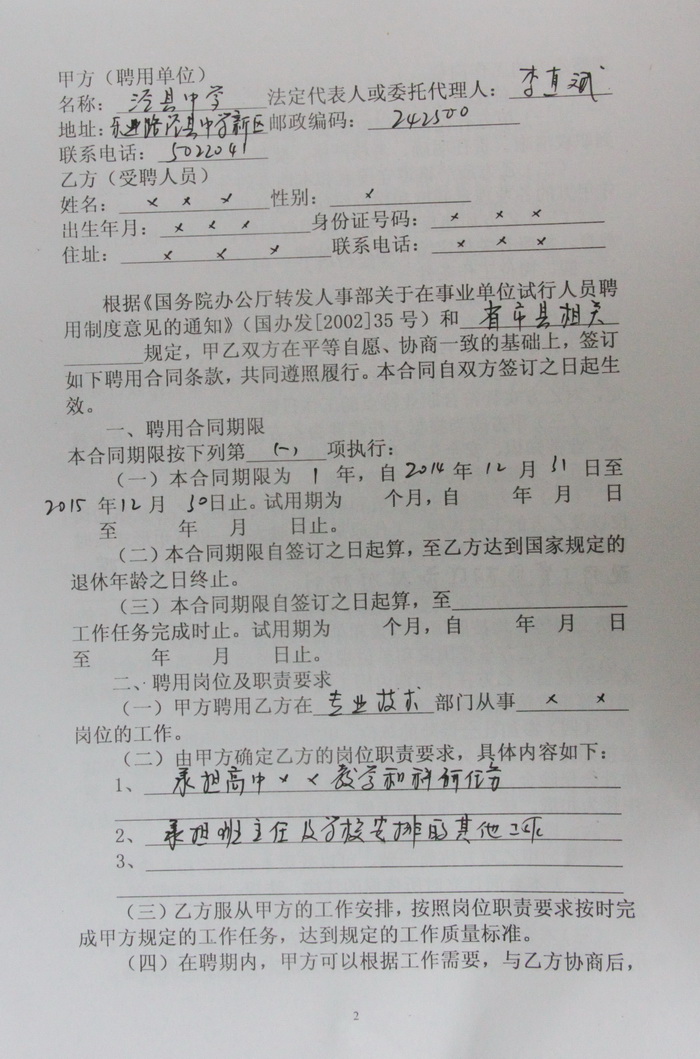 甲方（聘用单位）
名称：泾县中学 法定代表人或委托代理人：李直斌
地址：东业路泾县中学新区 邮政编码：242500
联系电话：5022041
乙方（受聘人员）
姓名：× × × 性别：×
出生年月：× × × 身份证号码：× × ×
住址：× × × 联系电话：× × ×
根据《国务院办公厅转发人事部关于在事业单位试行人员聘
用制度意见的通知》（国办发[2002]35 号）和 省市县相关
规定，甲乙双方在平等自愿、协商一致的基础上，签订
如下聘用合同条款，共同遵照履行。本合同自双方签订之日起生
效。
一、聘用合同期限
本合同期限按下列第（一）项执行：
（一）本合同期限为 1 年，自 2014 年 12 月 31 日至
2015 年 12 月 30 日止。试用期为 个月，自 年 月 日
至 年 月 日止。
（二）本合同期限自签订之日起算，至乙方达到国家规定的
退休年龄之日终止。
（三）本合同期限自签订之日起算，至
工作任务完成时止。试用期为 个月，自 年 月 日
至 年 月 日止。
二、聘用岗位及职责要求
（一）甲方聘用乙方在 专业技术 部门从事 × ×
岗位的工作。
（二）由甲方确定乙方的岗位职责要求，具体内容如下：
1、承担高中××教学和科研任务
2、承担班主任及学校安排的其他工作
3、
（三）乙方服从甲方的工作安排，按照岗位职责要求按时完
成甲方规定的工作任务，达到规定的工作质量标准。
（四）在聘期内，甲方可以根据工作需要，与乙方协商后，
2